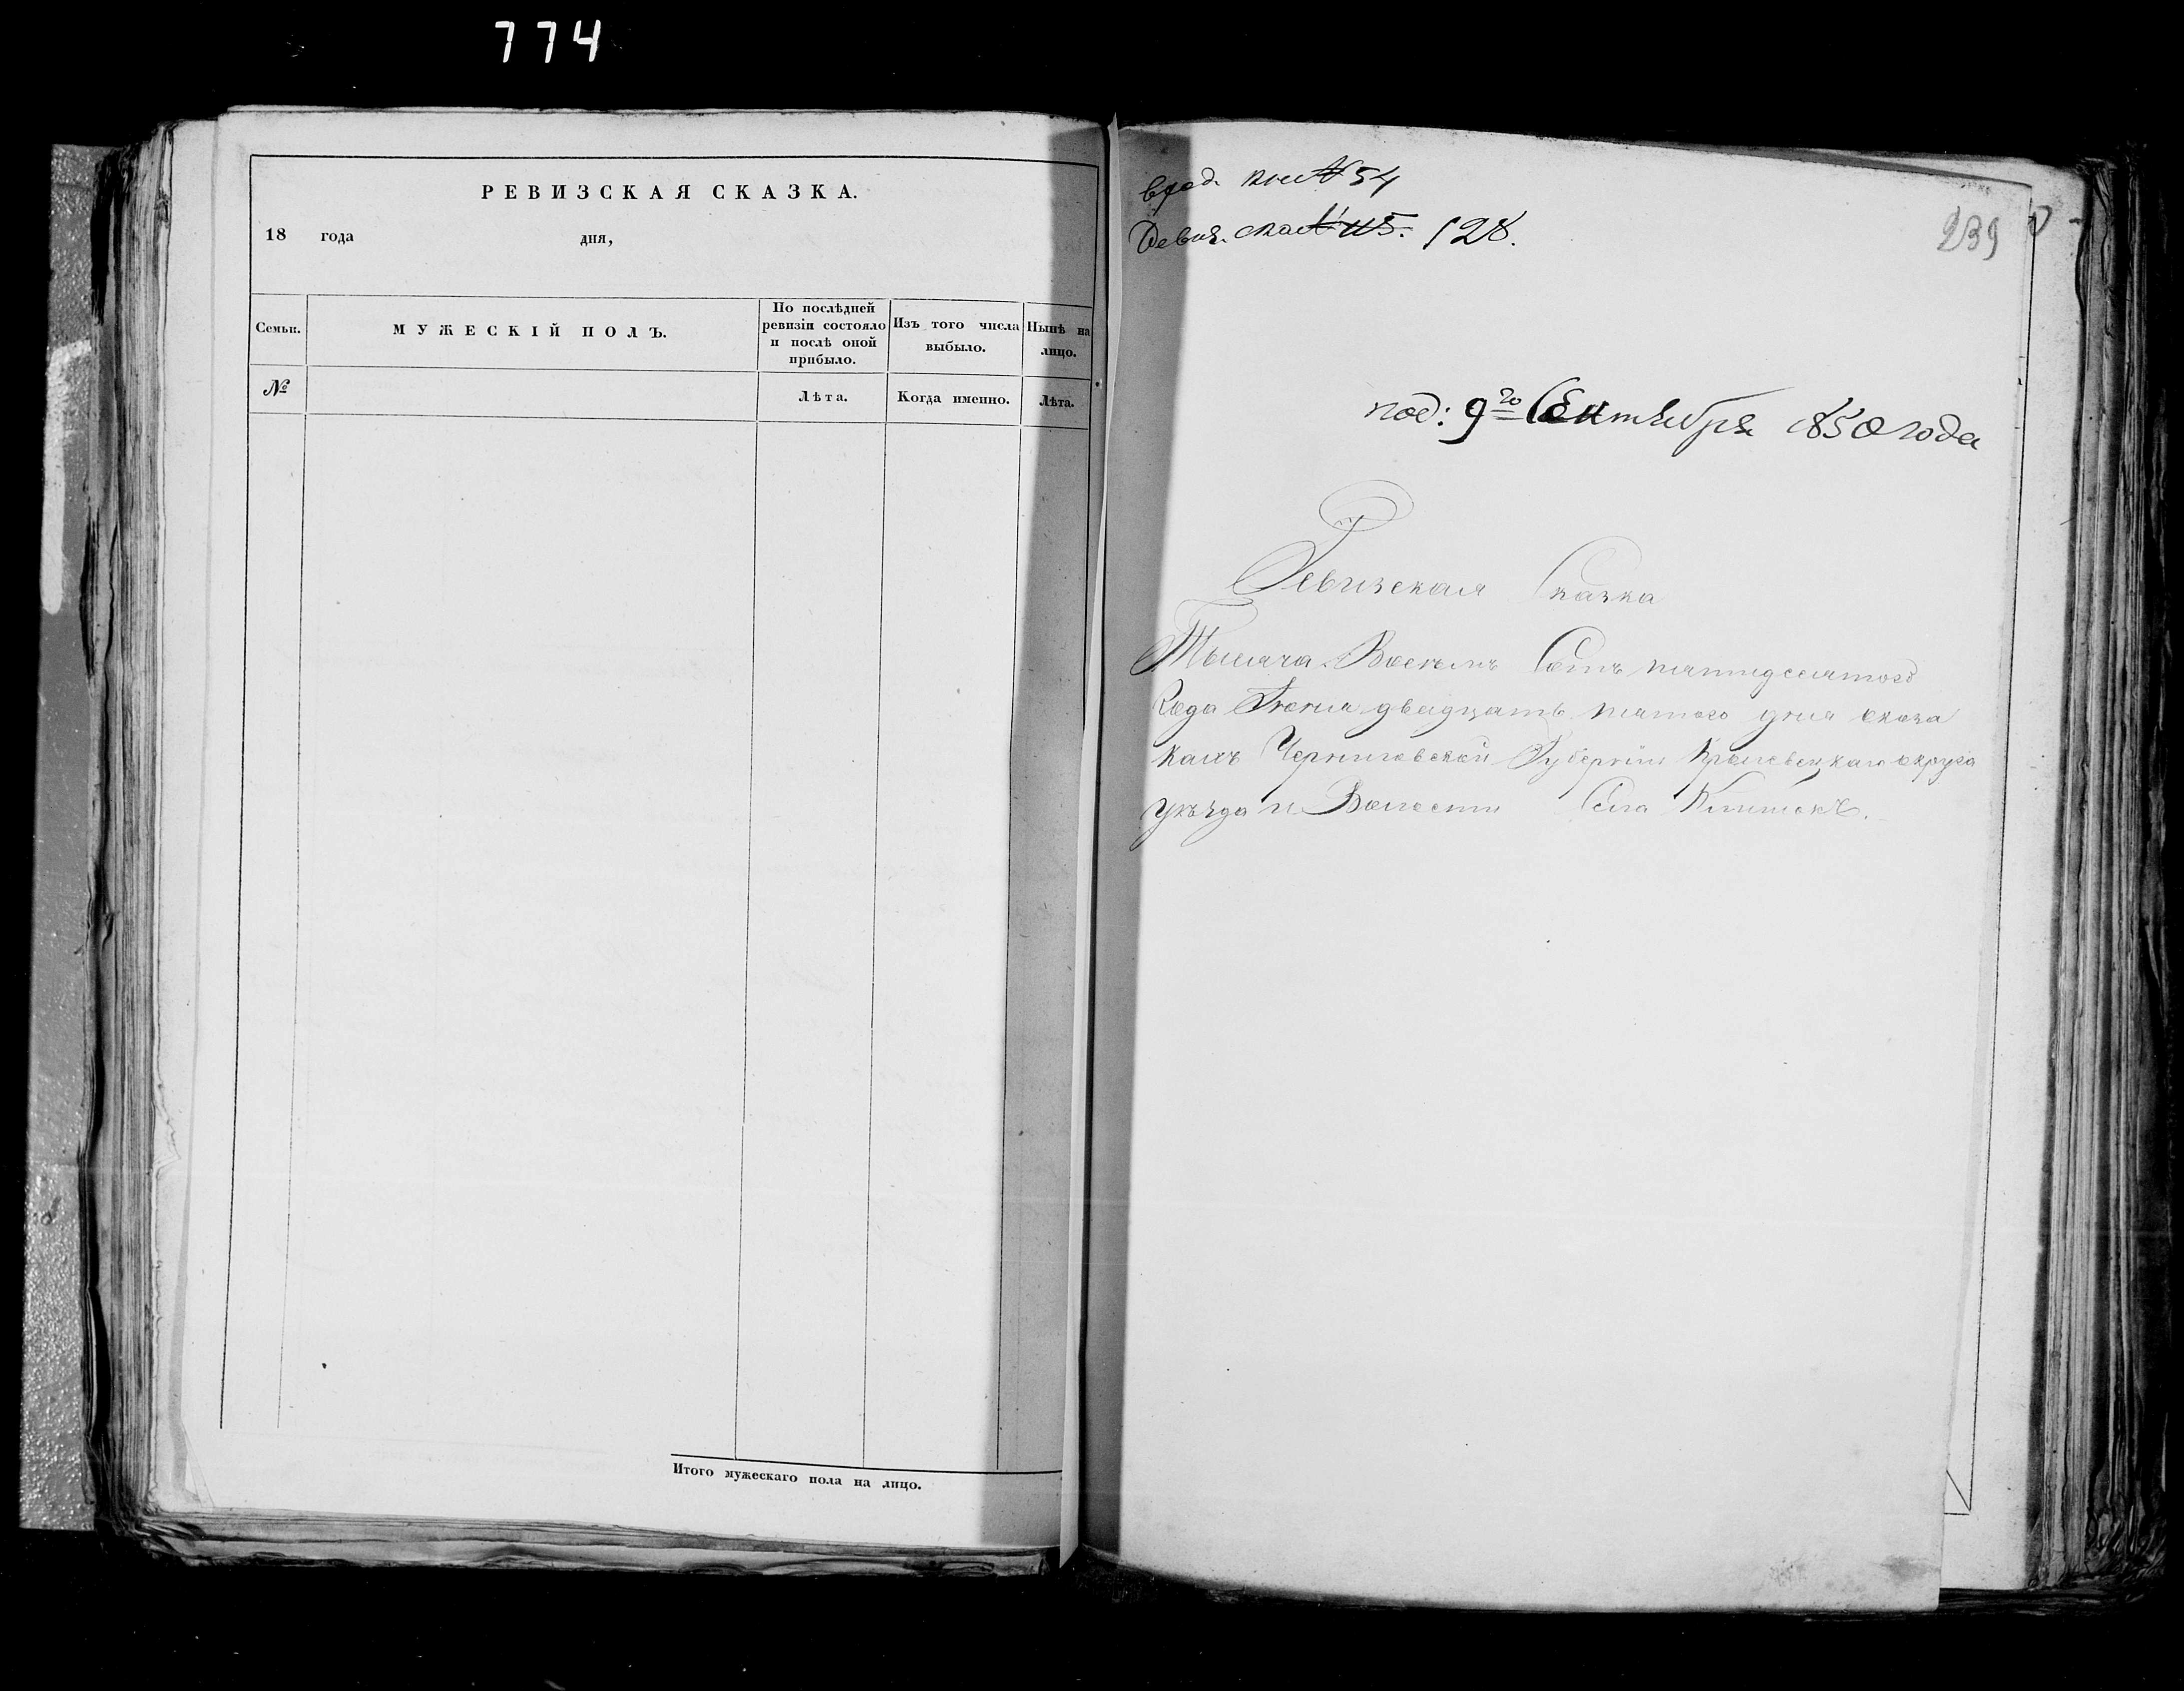 774
РЕВИЗСКАЯ СКАЗКА.
18 года дня,
Семьи.
МУЖЕСКІЙ ПОЛЪ.
По послѣдней
ревизіи состояло
и послѣ оной
прибыло.
Изъ того числа
выбыло.
Нынѣ на
лицо.
№
Лѣта.
Когда именно.
Лѣта.
Итого мужескаго пола на лицо.
№ 54
Ревиз. 115. 128.
239
под: 9го Сентября 1850 года
Ревизская Сказка
Тысяча Восемь Сотъ пятидесятого
Года двадцать пятого дня о коза
кахъ Черниговской Губерніи Кролевецкаго округа
уѣзда и Волости Села